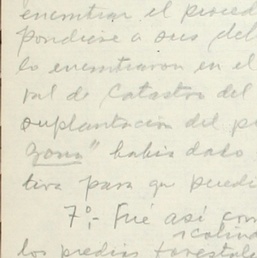 encontrar el proced
pondiese a sus del
lo encontraron en el
pal de Catastro del
suplantación del p
zona" había dado
tiva para que puedi
7º.- Fué así com
realiza
los predios forestale